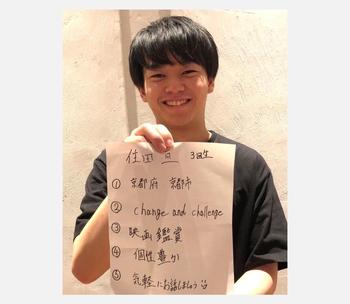 住田 亘 3回生
① 京都府 京都市
② change and challenge
③ 映画鑑賞
④ 個性豊か
⑤ 気軽にお話しましょう